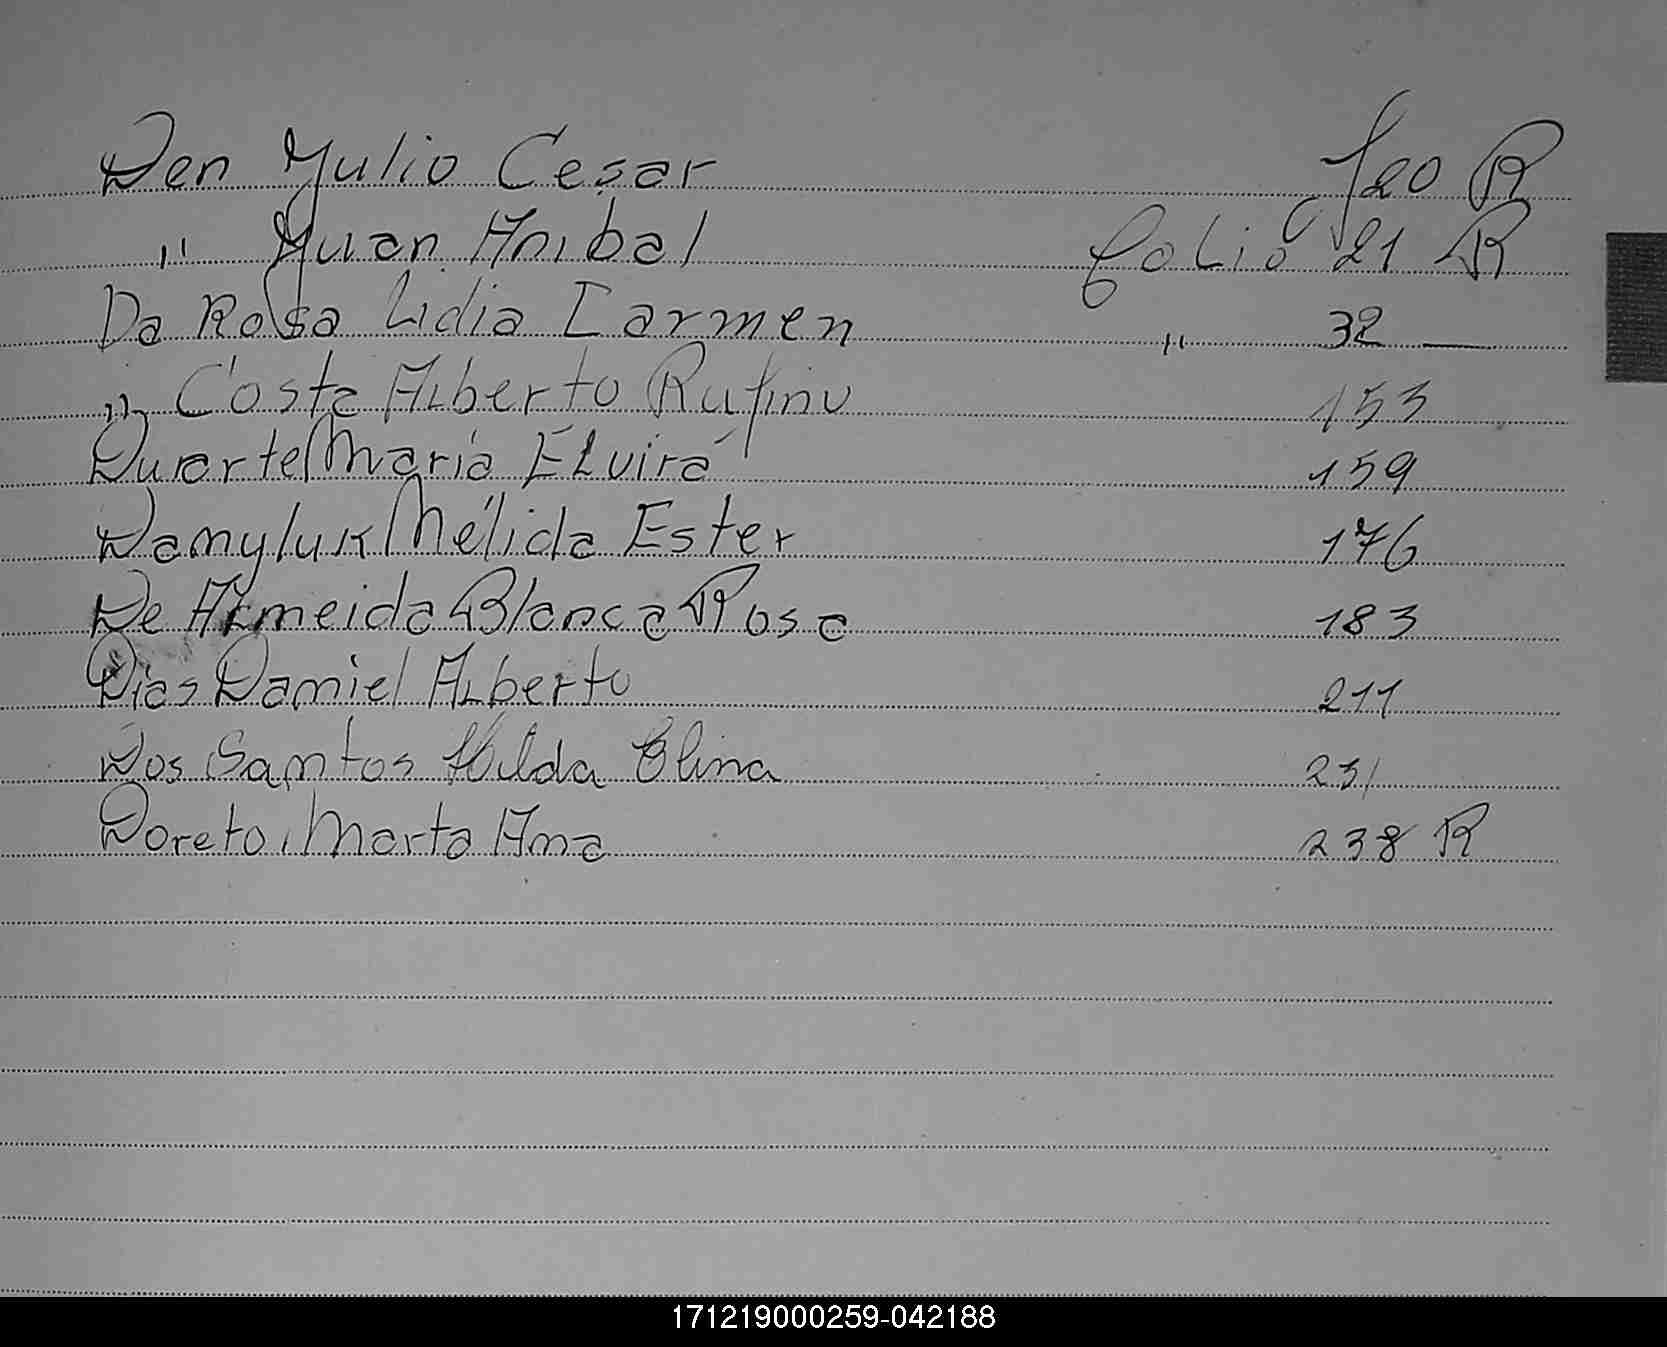 Den Yulio Cesar f 20 R
" Yuan Anibal folio 21 R
Da Rosa Lidia Carmen " 32 —
" Costa Alberto Rufino 153
Duarte Maria Elvira 159
Damyluk Mélida Ester 176
De Almeida Blanca Rosa 183
Dias Damiel Alberto 211
Dos Santos Hilda Elina 231
Doreto, Marta Ama 238 R
171219000259-042188